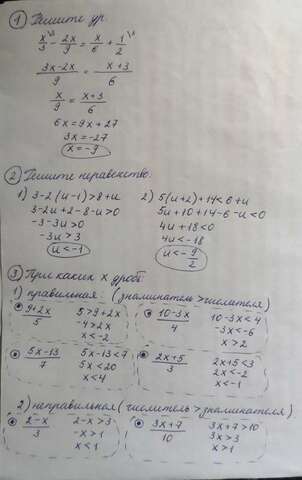 ① Решите ур.
x/3 \3 - 2x/9 = x/6 + 1/2 \3
3x-2x/9 = x+3/6
x/9 = x+3/6
6x = 9x + 27
3x = -27
x = -9
② Решите неравенство.
1) 3-2(u-1)>8+u
3-2u+2-8-u>0
-3-3u>0
-3u>3
u<-1
2) 5(u+2)+14<6+u
5u+10+14-6-u<0
4u+18<0
4u<-18
u<-9/2
③ При каких x дробь
1) правильная: (знаменатель>числителя)
9+2x/5 5>9+2x
-4>2x
x<-2
10-3x/4 10-3x<4
-3x<-6
x>2
5x-13/7 5x-13<7
5x<20
x<4
2x+5/3 2x+5<3
2x<-2
x<-1
2) неправильная (числитель>знаменателя)
2-x/3 2-x>3
-x>1
x<1
3x+7/10 3x+7>10
3x>3
x>1